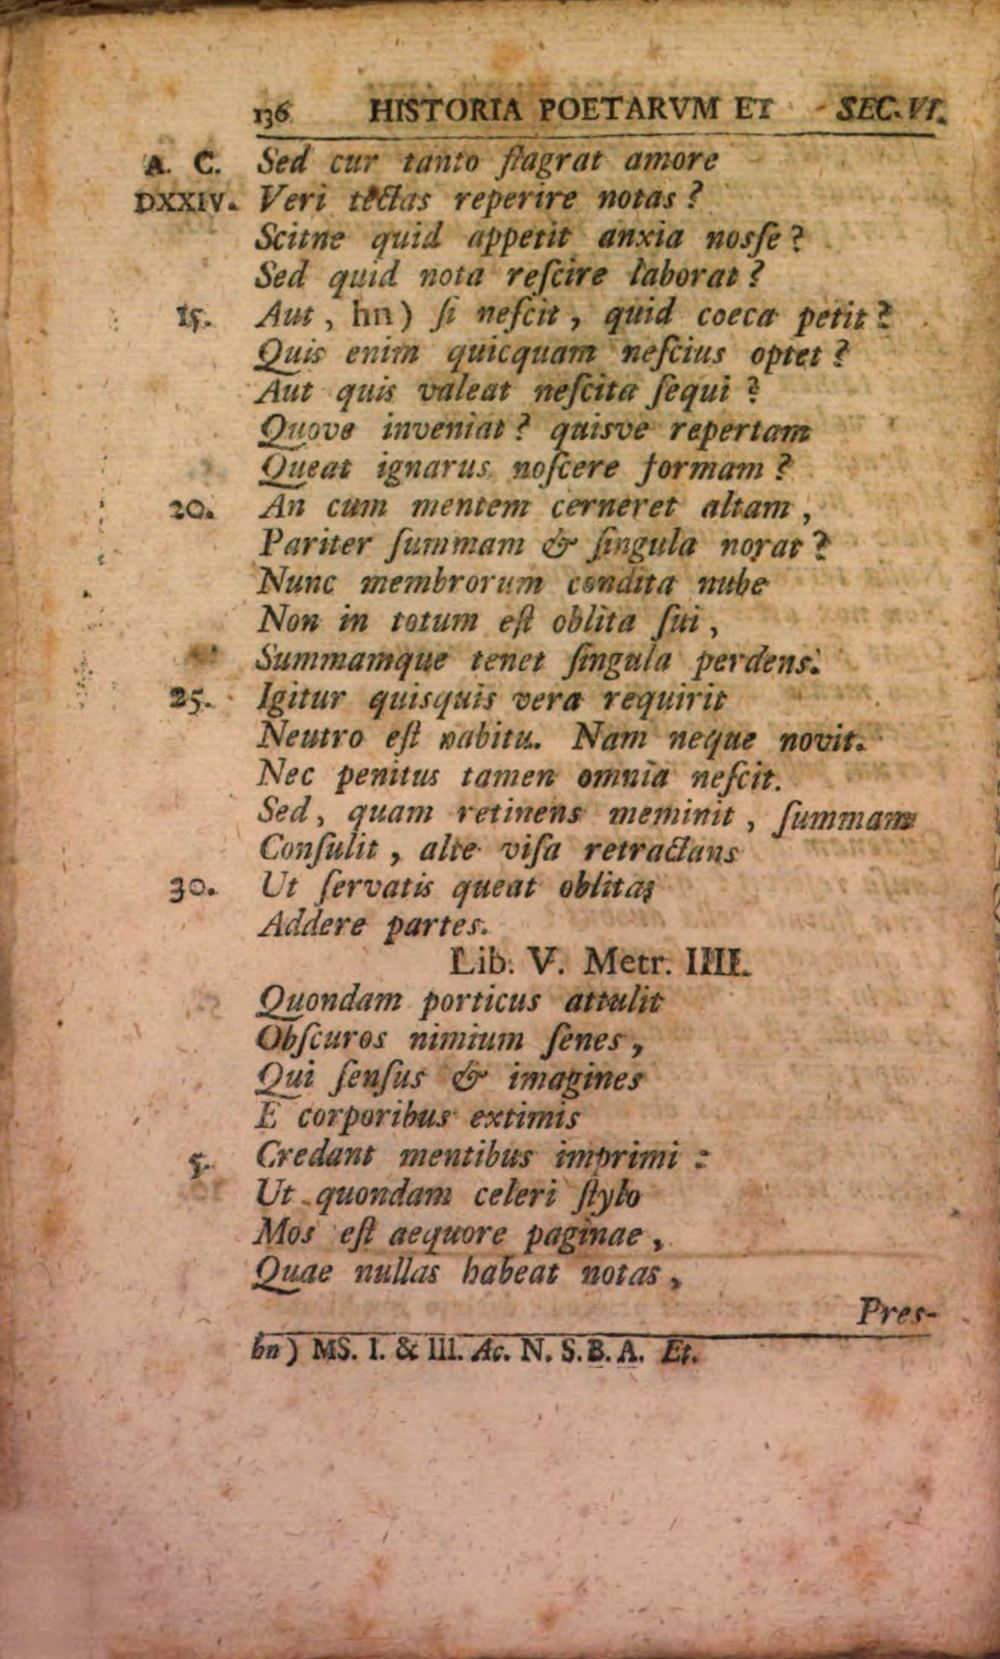 136 HISTORIA POETARVM ET SEC. VI.
A. C. Sed cur tanto flagrat amore
DXXIV. Veri tectas reperire notas ?
Scitne quid appetit anxia nosſe ?
Sed quid nota reſcire laborat ?
15. Aut , hn) ſi neſcit , quid coeca petit ?
Quis enim quicquam neſcius optet ?
Aut quis valeat neſcita ſequi ?
Quove inveniat ? quisve repertam
Queat ignarus noſcere formam ?
20. An cum mentem cerneret altam ,
Pariter ſummam & ſingula norat ?
Nunc membrorum condita nube
Non in totum eſt oblita ſui ,
Summamque tenet ſingula perdens.
25. Igitur quisquis vera requirit
Neutro eſt habitu. Nam neque novit.
Nec penitus tamen omnia neſcit.
Sed, quam retinens meminit , ſummam
Conſulit , alte viſa retractans
30. Ut ſervatis queat oblitas
Addere partes.
Lib. V. Metr. IIII.
Quondam porticus attulit
Obſcuros nimium ſenes ,
Qui ſenſus & imagines
E corporibus extimis
5. Credant mentibus imprimi :
Ut quondam celeri ſtylo
Mos eſt aequore paginae ,
Quae nullas habeat notas ,
Pres-
hn ) MS. I. & III. Ac. N. S. B. A. Et.